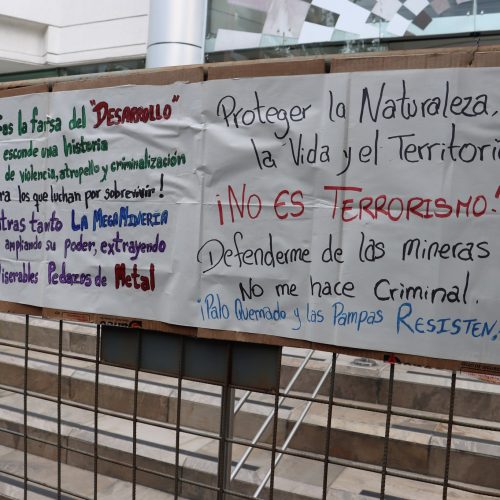 la farsa del "DESARROLLO"
esconde una historia
de violencia, atropello y criminalización
los que luchan por sobrevivir!
tras tanto LA MEGAMINERIA
ampliando su poder, extrayendo
iserables Pedazos de Metal
Proteger la Naturaleza,
la Vida y el Territori
¡NO ES TERRORISMO!
Defenderme de las mineras
No me hace Criminal.
¡Palo Quemado y las Pampas RESISTEN!